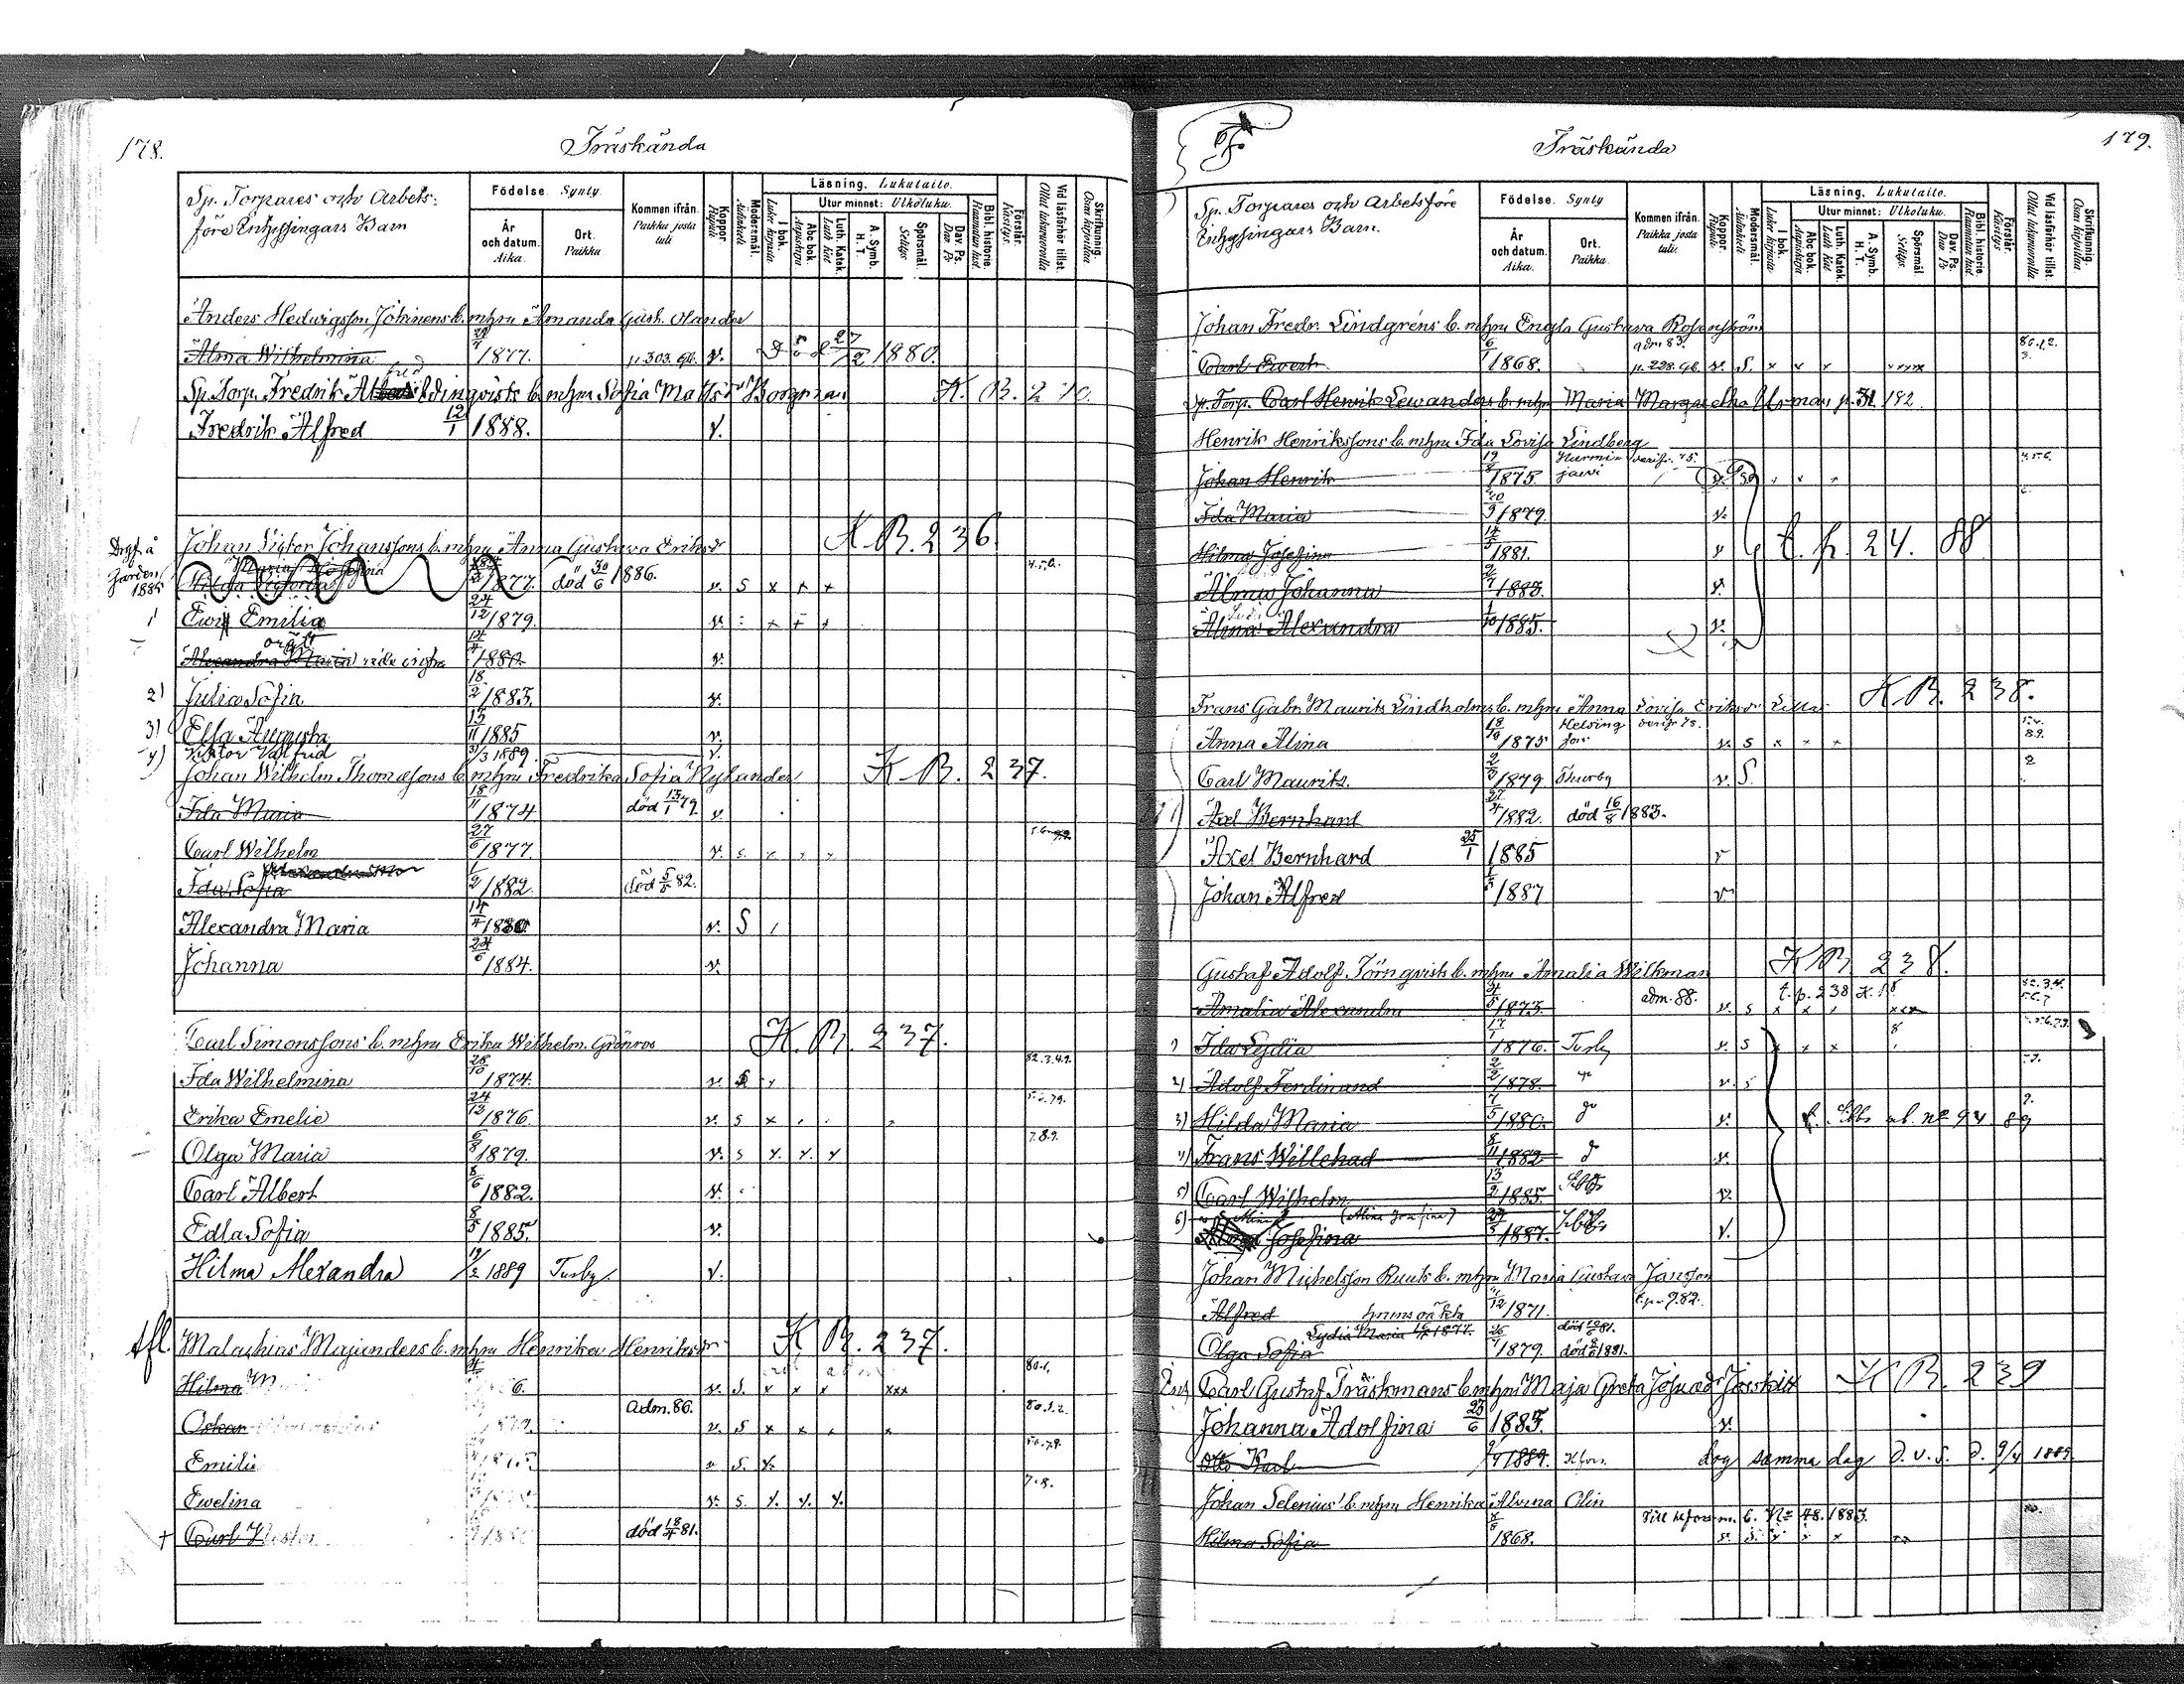 178.
Träskända
Sp. Torpares och Arbets-
före Enhyssingars Barn
Födelse. Synty.
År och datum. Aika.
Ort. Paikka
Kommen ifrån. Paikka josta tuli
Koppor. Rupuli
Modersmål. Äidinkieli
Läsning. Lukutaito.
I bok. Luku kirjasta.
Utur minnet: Ulkoluku.
Abc bok. Aapiskirja
Luth. Katek. Luth. Kat.
A. Symb. H. T.
Spörsmål. Selitys.
Dav. Ps. Dav. Ps
Bibl. historie. Raamatun hist.
Förstår. Käsitys.
Vid läsförhör tillst. Ollut lukuvuorolla
Skrifkunnig. Osaa kirjoittaa
Anders Hedvigsson Johinens b. m. hru Amanda Gust. Olander
Alma Wilhelmina 1877. p. 303. gb. v. 27/12 1880.
Sp. Torp. Fredrik Alfred Edinqvists b. m hru Sofia Matts dr Borgman K. B. 210.
Fredrik Alfred 12/1 1888. v.
Johan Victor Johanssons b. m hru Anna Gustava Eriksdr K. B. 236.
Hilda 1877. död 30/6 1886. v. s x x x 4.5.6.
1885
1) Emilia 24/12 1879. v.
Alexandra Maria 14/4 1880. v.
2) Julia Sofia 18/2 1883. v.
3) Ella Augusta 15/11 1885 v.
4) Viktor Valfrid 31/3 1889. v.
Johan Wilhelm Thomassons b. m hru Fredrika Sofia Nylander K. B. 237.
Ida Maria 18/11 1874 död 13/1 79 v.
Carl Wilhelm 27/6 1877. v. s.
Ida Sofia 1/2 1882. död 5/5 82.
Alexandra Maria 14/4 1880 v. S
Johanna 24/6 1884. v.
Carl Simonssons b. m hru Erika Wilhelm. Grönroos K. B. 237.
Ida Wilhelmina 28/10 1874. v. 82.3.4.9.
Erika Emelie 24/12 1876. v. s x 5.6.7.9.
Olga Maria 6/8 1879. v. s x. x. x 7.8.9.
Carl Albert 8/6 1882. v.
Edla Sofia 8/5 1885. v.
Hilma Alexandra 19/2 1889 Tusby. v.
Malachias Majanders b. m hru Henrika Henriksdr K. B. 237.
Hilma v. S. x x x xxx 80.1.
Oskar adm. 86. v. S x x 80.1.2.
Emilie v S. x. 5.6.7.9.
Ewelina v. s. x. x. x. 7.8.
+ Carl död 18/4 81.
179.
Träskända
Sp. Torpares och Arbetsföre
Enhyssingars Barn.
Födelse. Synty
År och datum. Aika.
Ort. Paikka.
Kommen ifrån. Paikka josta tuli.
Koppor. Rupuli
Modersmål. Äidinkieli
Läsning. Lukutaito.
I bok. Luku kirjasta.
Utur minnet: Ulkoluku.
Abc bok. Aapiskirja
Luth. Katek. Luth. Kat
A. Symb. H. T.
Spörsmål. Selitys.
Dav. Ps. Dav. Ps
Bibl. historie. Raamatun hist.
Förstår. Käsitys
Vid läsförhör tillst. Ollut lukuvuorolla
Skrifkunnig. Osaa kirjoittaa
Johan Fredr. Lindgréns b. m hru Engla Gustava Rosenström
Carl Evert 6/1 1868. adm 83. p. 228. gb. v. S. x x x xxxx 80.1.2. 3.
Sp. Torp. Carl Henrik Lewanders b. m hru Maria Margaretha Ulrman p. 182
Henrik Henrikssons b. m hru Ida Lovisa Lindberg
Johan Henrik 19/8 1875. Nurmijärvi 4.5.6.
Ida Maria 20/9 1879. v.
Hilma Josefina 14/5 1881. v t. p. 24. 88
Alma Johanna 1883. v.
Alina Alexandra 1/10 1885. v.
Frans Gabr. Maurits Lindholms b. m hru Anna Lovisa Eriksdr Lilla K. B. 238.
Anna Alina 18/10 1875 Helsingfors v. s x x x 8.9.
Carl Maurits. 2/3 1879. Thusby v. S. 2
Axel Bernhard 27/4 1882. död 16/8 1883.
Axel Bernhard 25/1 1885 v
Johan Alfred 1/5 1887 v
Gustaf Adolf Törnqvists b. m hru Amalia Wilkman K B. 238.
Amalia Alexandra 1873. adm. 88. t. p. 238 v. s x x xxx 82.3.4. 5.6.7
1) Ida Lydia 17/1 1876. Tusby v. s x x x
2) Adolf Ferdinand 2/2 1878. v. s
3) Hilda Maria 7/5 1880. v. t. Sibbo ab. no 94 89
4) Frans Willehad 8/11 1882 v.
5) Carl Wilhelm 13/2 1885. Sibbo v.
6) Josefina (Alina Josefina) 1887. Sibbo v.
Johan Michelsson Ruuts b. m hru Maria Gustava Jansson
Alfred hruns oäkta 1871. t. p. 282.
Lydia Maria 1877. död 81.
Olga Sofia 1879. död 1881.
Carl Gustaf Träskmans b. m hru Maja Greta Josuadr Jorskitt K B. 239
Johanna Adolfina 23/6 1883. v.
Otto Karl 9/4 1889. Hfors. dog samma dag d. v. s. d. 9/4 1889.
Johan Selenius b. m hru Henrika Alvina Olin
Till Hfors m. b. No 48. 1883.
Hilma Sofia 1868. v. s. x x x